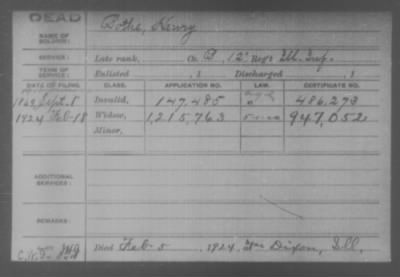 DEAD
NAME OF SOLDIER: Pothe, Henry
Late rank, Co. B, 12" Reg't Ill. Inf.
TERM OF SERVICE: Enlisted , 1 Discharged , 1
DATE OF FILING. CLASS. APPLICATION NO. LAW. CERTIFICATE NO.
1869, Sept. 8 Invalid, 147,485 486,273
1924 Feb-18 Widow, 1,215,763 5-1-20 947,052
Minor,
ADDITIONAL SERVICES:
REMARKS:
Died Feb. 5, 1924, Dixon, Ill.